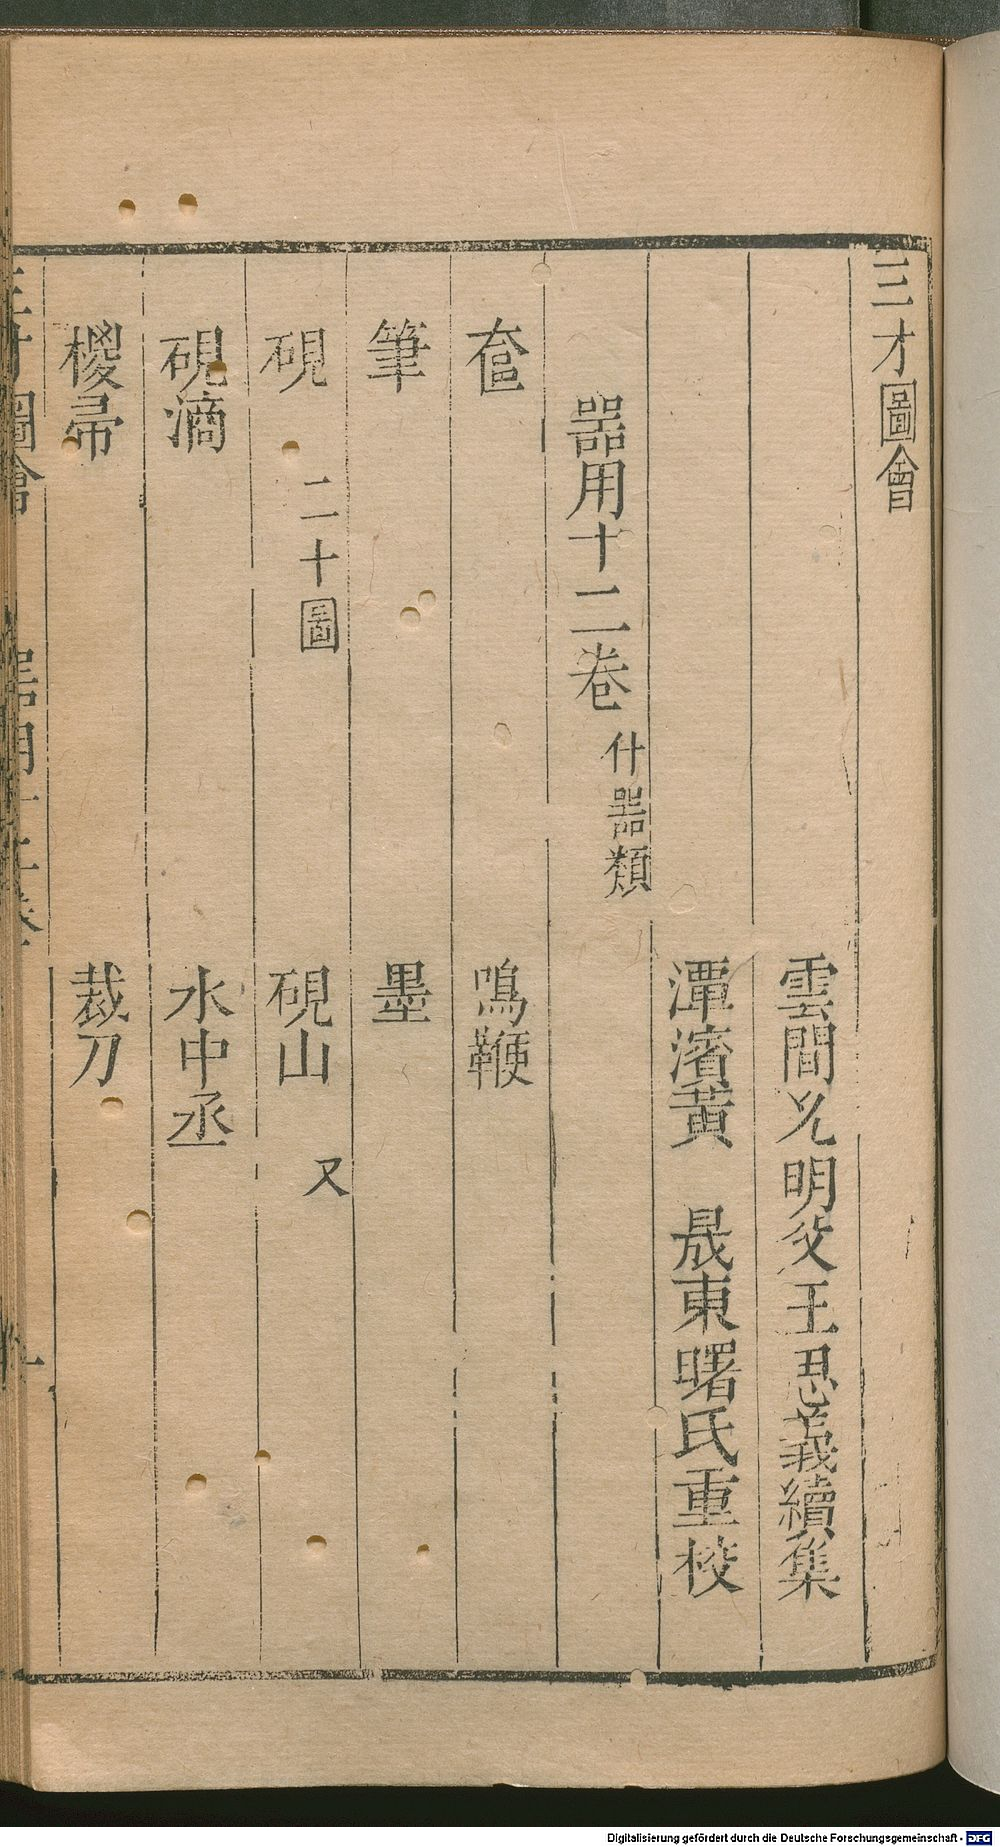 三才圖會
雲間允明父王思義續集
潭濱黃 晟東曙氏重校
器用十二卷 什器類
奩 鳴鞭
筆 墨
硯 二十圖 硯山 又
硯滴 水中丞
椶帚 裁刀
三才圖會 器用十二卷 一
Digitalisierung gefördert durch die Deutsche Forschungsgemeinschaft - DFG